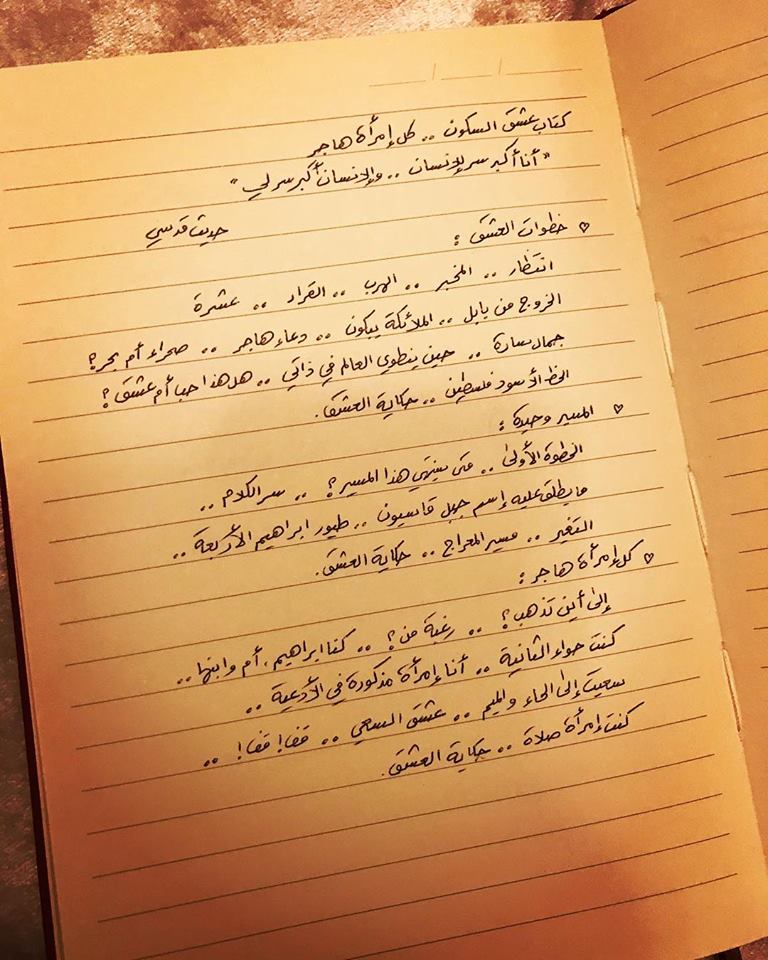 كتاب عشق السكون .. كل إمرأة هاجر
"أنا أكبر سر للإنسان .. والإنسان أكبر سر لي"
حديث قدسي
♡ خطوات العشق :
انتظار .. المخبر .. الهرب .. القرار .. عشرة
الخروج من بابل .. الملائكة يبكون .. دعاء هاجر .. صحراء أم بحر؟
جمال سارة .. حين ينطوي العالم في ذاتي .. هل هذا حبا أم عشق؟
الخط الأسود فلسطين .. حكاية العشق.
♡ المسير وحيدة :
الخطوة الأولى .. متى ينتهي هذا المسير؟ .. سر الكلام ..
ما يطلق عليه إسم جبل قاسيون .. طيور ابراهيم الأربعة ..
التغير .. مسير المعراج .. حكاية العشق.
♡ كل إمرأة هاجر :
إلى أين تذهب؟ .. رغبة من؟ .. كفا ابراهيم، أم وابنها ..
كنت حواء الثانية .. أنا إمرأة مذكورة في الأدعية ..
سعيت إلى الحاء والميم .. عشق السعي .. قفا! قفا! ..
كنت إمرأة صلاة .. حكاية العشق.